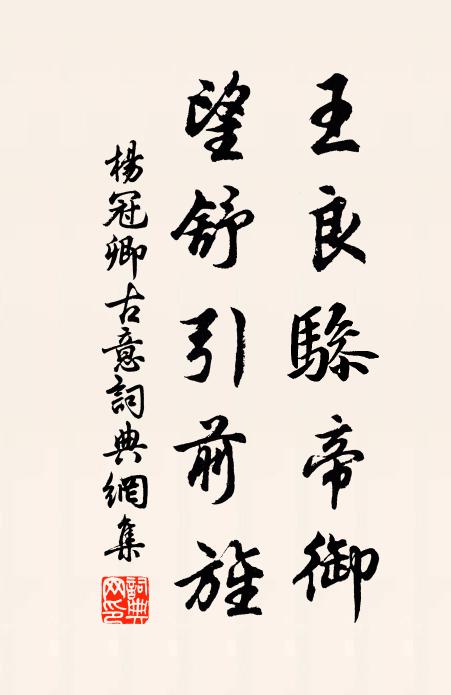 王良驂帝御
望舒引前旌
楊冠卿古意詞典網集
詞典网印